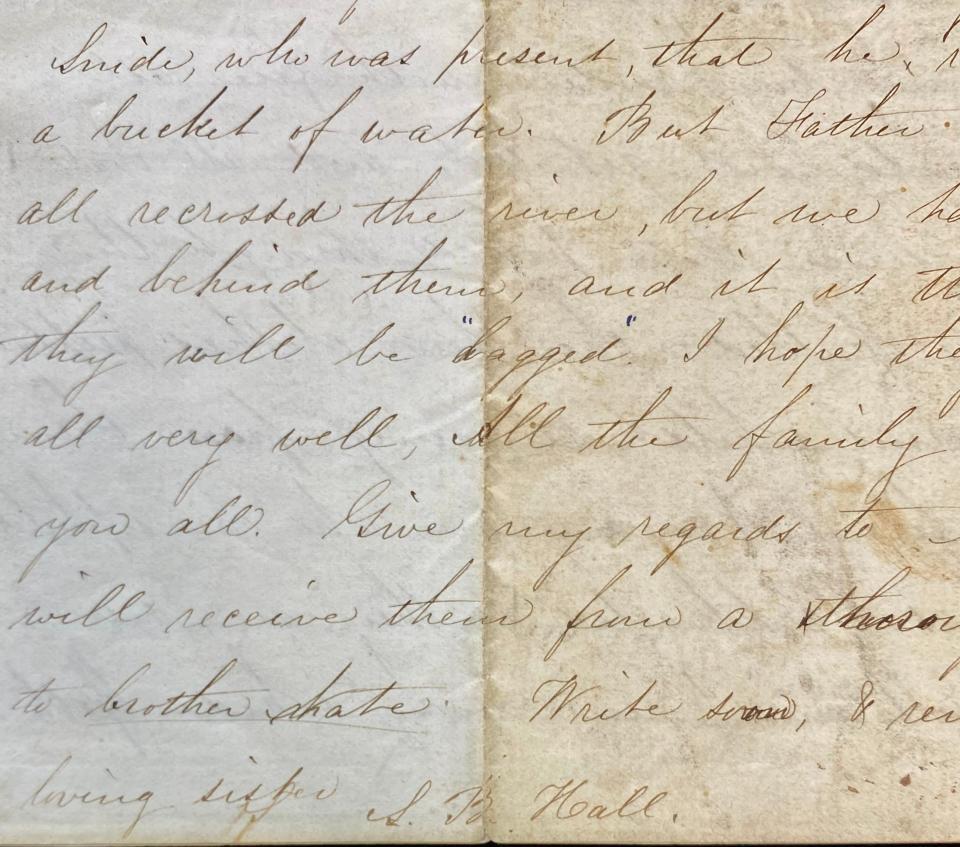 Snide, who was present, that he
a bucket of water. But Father
all recrossed the river, but we
and behind them, and it is
they will be "bagged". I hope the
all very well, All the family
you all. Give my regards to
will receive them from a
to brother skate. Write soon, &
loving sister S. B. Hall.